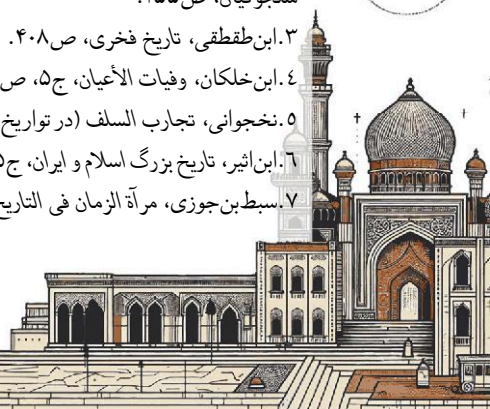 سلجوقیان، ص۲۵۵.
۳.ابن‌طقطقی، تاریخ فخری، ص۴۰۸.
٤.ابن‌خلکان، وفیات الأعیان، ج۵، ص
۵.نخجوانی، تجارب السلف (در تواریخ
٦.ابن‌اثیر، تاریخ بزرگ اسلام و ایران، ج
۷.سبط‌بن‌جوزی، مرآة الزمان فی التاریخ